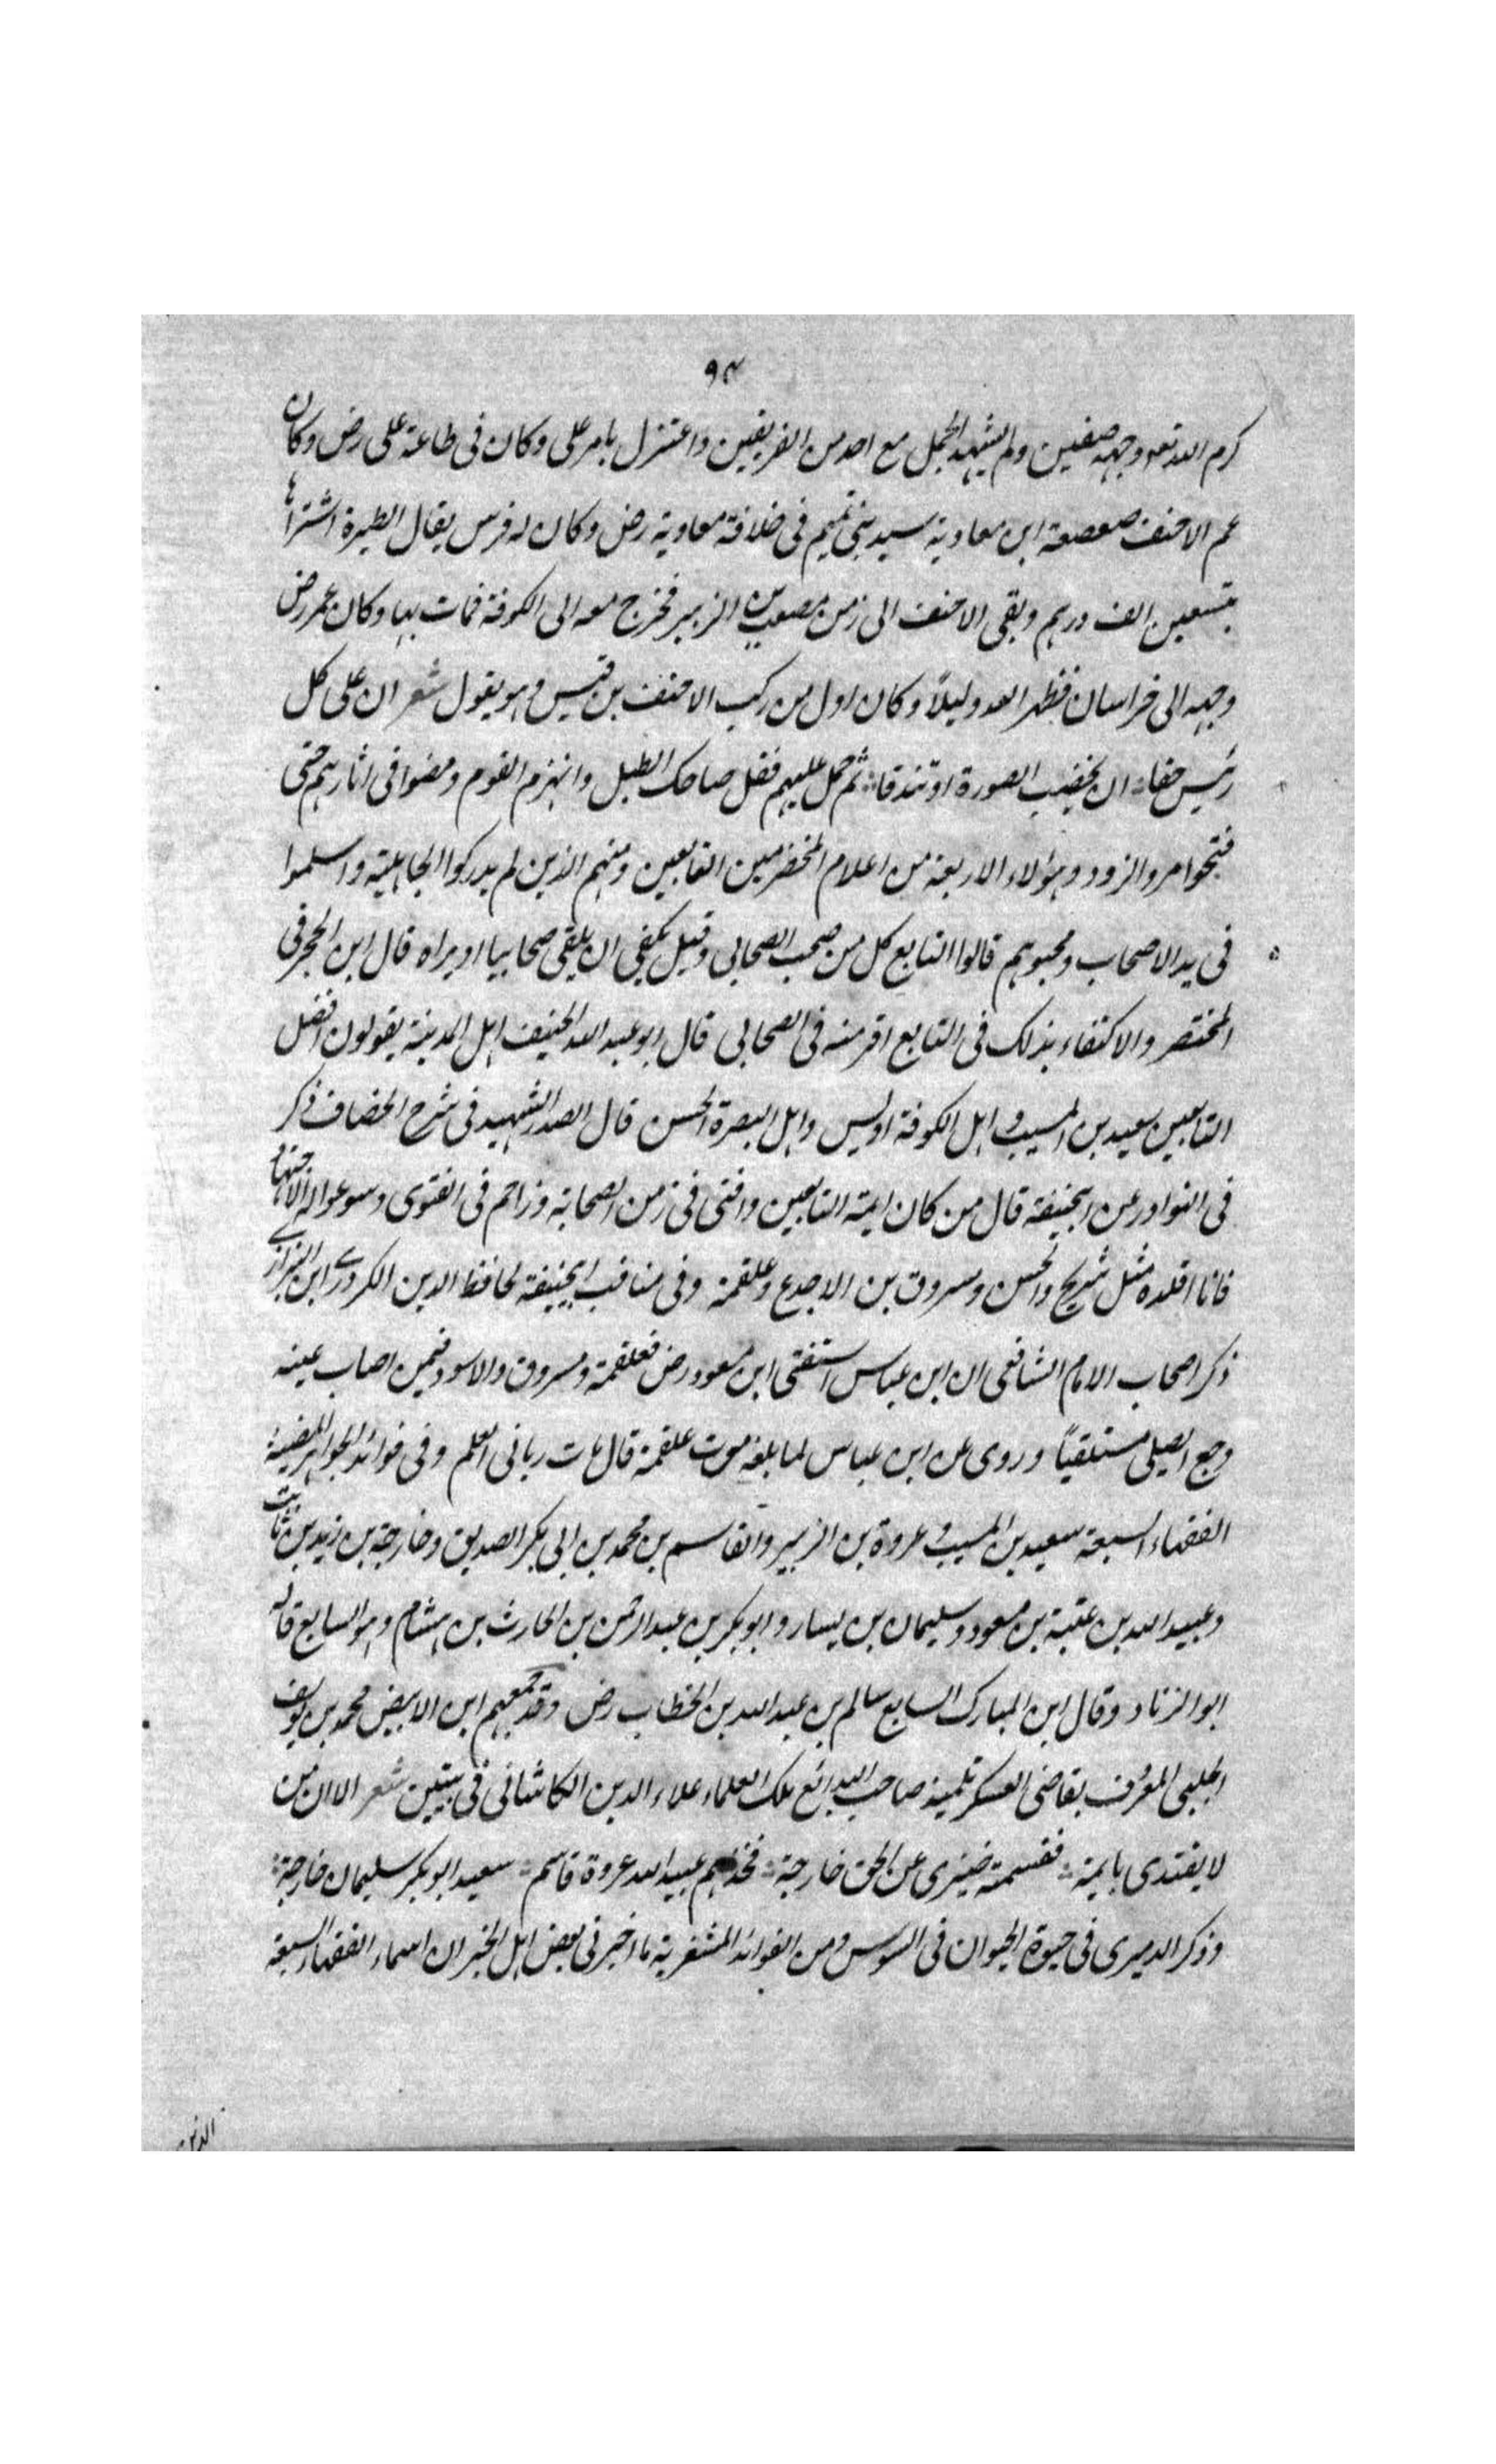 ٩٣
كرم الله تعه وجهه صفين ولم يشهد الجمل مع احد من الفريقين واعتزل بامر على وكان فى طاعة على رض وكان
عم الاحنف صعصعة ابن معاوية سيد بنى تميم فى خلافة معاوية رض وكان له فرس يقال الطيرة اشتراها
بتسعين الف درهم وبقى الاحنف الى زمن مصعب بن الزبير فخرج معه الى الكوفة فمات بها وكان عمر رض
وجهه الى خراسان فظهر العدو ليلاً وكان اول من ركب الاحنف بن قيس وهو يقول شعر ان على كل
رئيس حقا ان يخضب الصورة او تندقا ثم حمل عليهم فقتل صاحب الطبل وانهزم القوم ومضوا فى اثارهم حتى
فتحوا مرو الزود وهؤلاء الاربعة من اعلام المخضرمين التابعين ومنهم الذين لم يدركوا الجاهلية واسلموا
فى يد الاصحاب ومحبوهم قالوا التابع كل من صحب الصحابى وقيل يكفى ان يلقى صحابيا او يراه قال ابن الحجر فى
المختصر والاكتفاء بذلك فى التابع اقر منه فى الصحابى قال ابو عبد الله الحنيف اهل المدينة يقولون افضل
التابعين سعيد بن المسيب و اهل الكوفة اويس واهل البصرة الحسن قال الصدر الشهيد فى شرح الخصاف ذكر
فى النوادر عن ابيحنيفة قال من كان ايمة التابعين وافتى فى زمن الصحابة وزاحم فى الفتوى وسوعوا له الاجتهاد
فانا اقلده مثل شريح والحسن ومسروق بن الاجدع وعلقمة وفى مناقب ابيحنيفة لحافظ الدين الكردرى ابن البزازى
ذكر اصحاب الامام الشافعى ان ابن عباس استفتى ابن مسعود رض فعلقمة ومسروق والاسود فيمن اصاب عينه
وجع ايصلى مستلقياً وروى عن ابن عباس لما بلغه موت علقمة قال مات ربانى العلم وفى فوائد الجواهر المضية
الفقهاء السبعة سعيد بن المسيب و عروة بن الزبير والقاسم بن محمد بن ابى بكر الصديق وخارجة بن زيد بن ثابت
وعبيد الله بن عتبة بن مسعود وسليمان بن يسار وابو بكر بن عبد الرحمن بن الحارث بن هشام وهو السابع قاله
ابو الزناد وقال ابن المبارك السابع سالم بن عبد الله بن الخطاب رض وقد جمعهم ابن الابيض محمد بن يوسف
الحلبى المعروف بقاضى العسكر تلميذ صاحب البدائع ملك العلماء علاء الدين الكاشانى فى بيتين شعر الا ان من
لا يقتدى بايمة فقسمته ضيزى عن الحق خارجة فخذهم عبيد الله عروة قاسم سعيد ابو بكر سليمان خارجة
وذكر الدميرى فى حيوة الحيوان فى السوس ومن الفوائد المشفرية ما اخبرنى بعض اهل الخبر ان اسماء الفقهاء السبعة
الذين